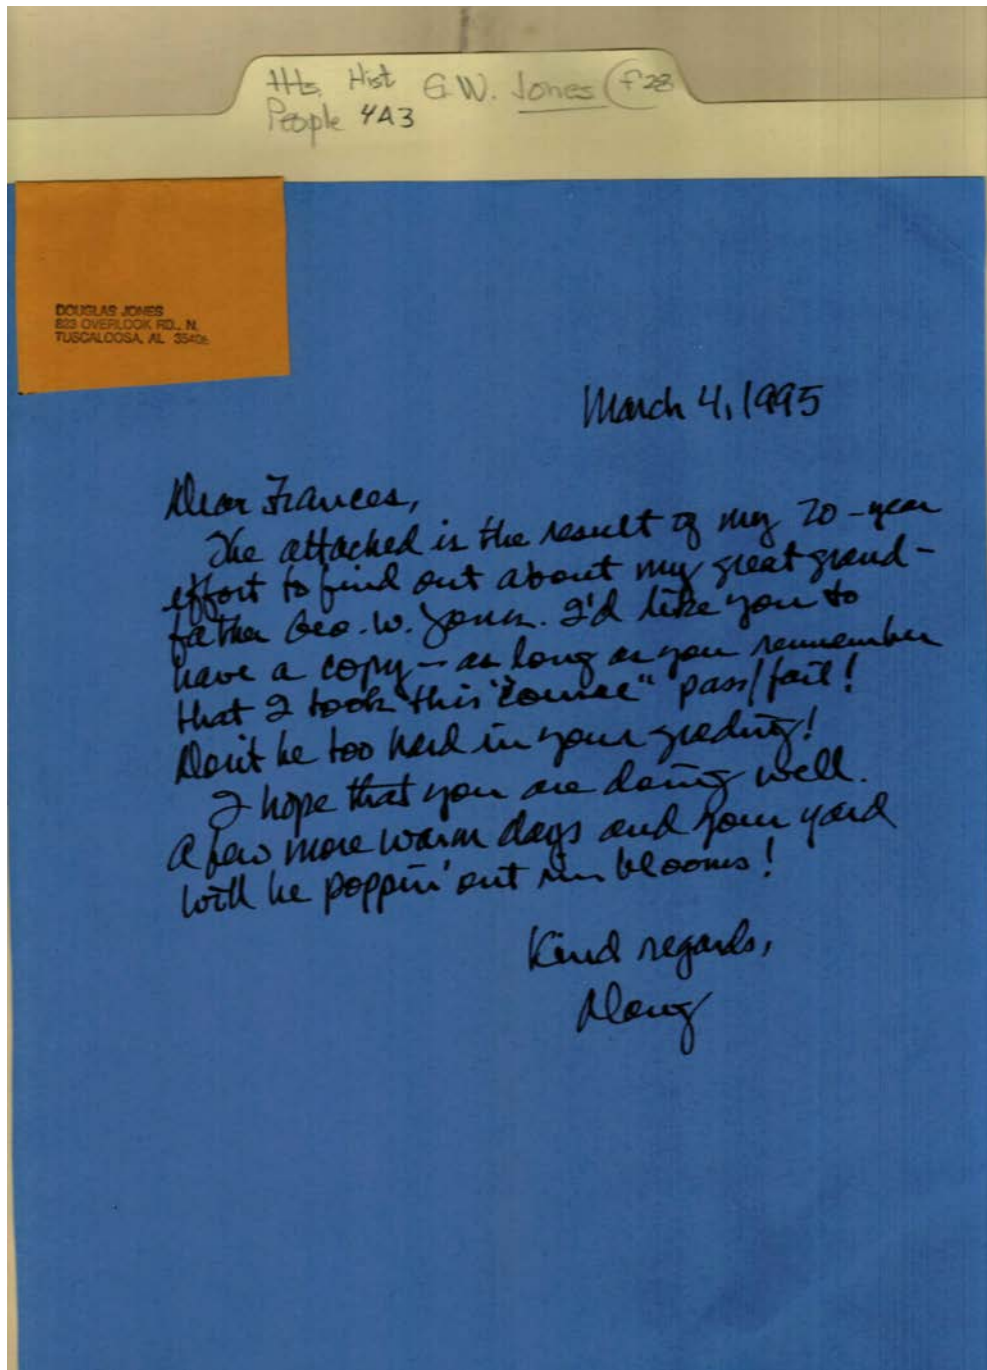 Hts. Hist G.W. Jones (f28)
People 4A3
DOUGLAS JONES
823 OVERLOOK RD., N.
TUSCALOOSA, AL 35406
March 4, 1995
Dear Frances,
The attached is the result of my 20-year
effort to find out about my great grand-
father Geo. W. Jones. I'd like you to
have a copy — as long as you remember
that I took this "course" pass/fail!
Don't be too hard in your grading!
I hope that you are doing well.
A few more warm days and your yard
will be poppin' out in blooms!
Kind regards,
Doug